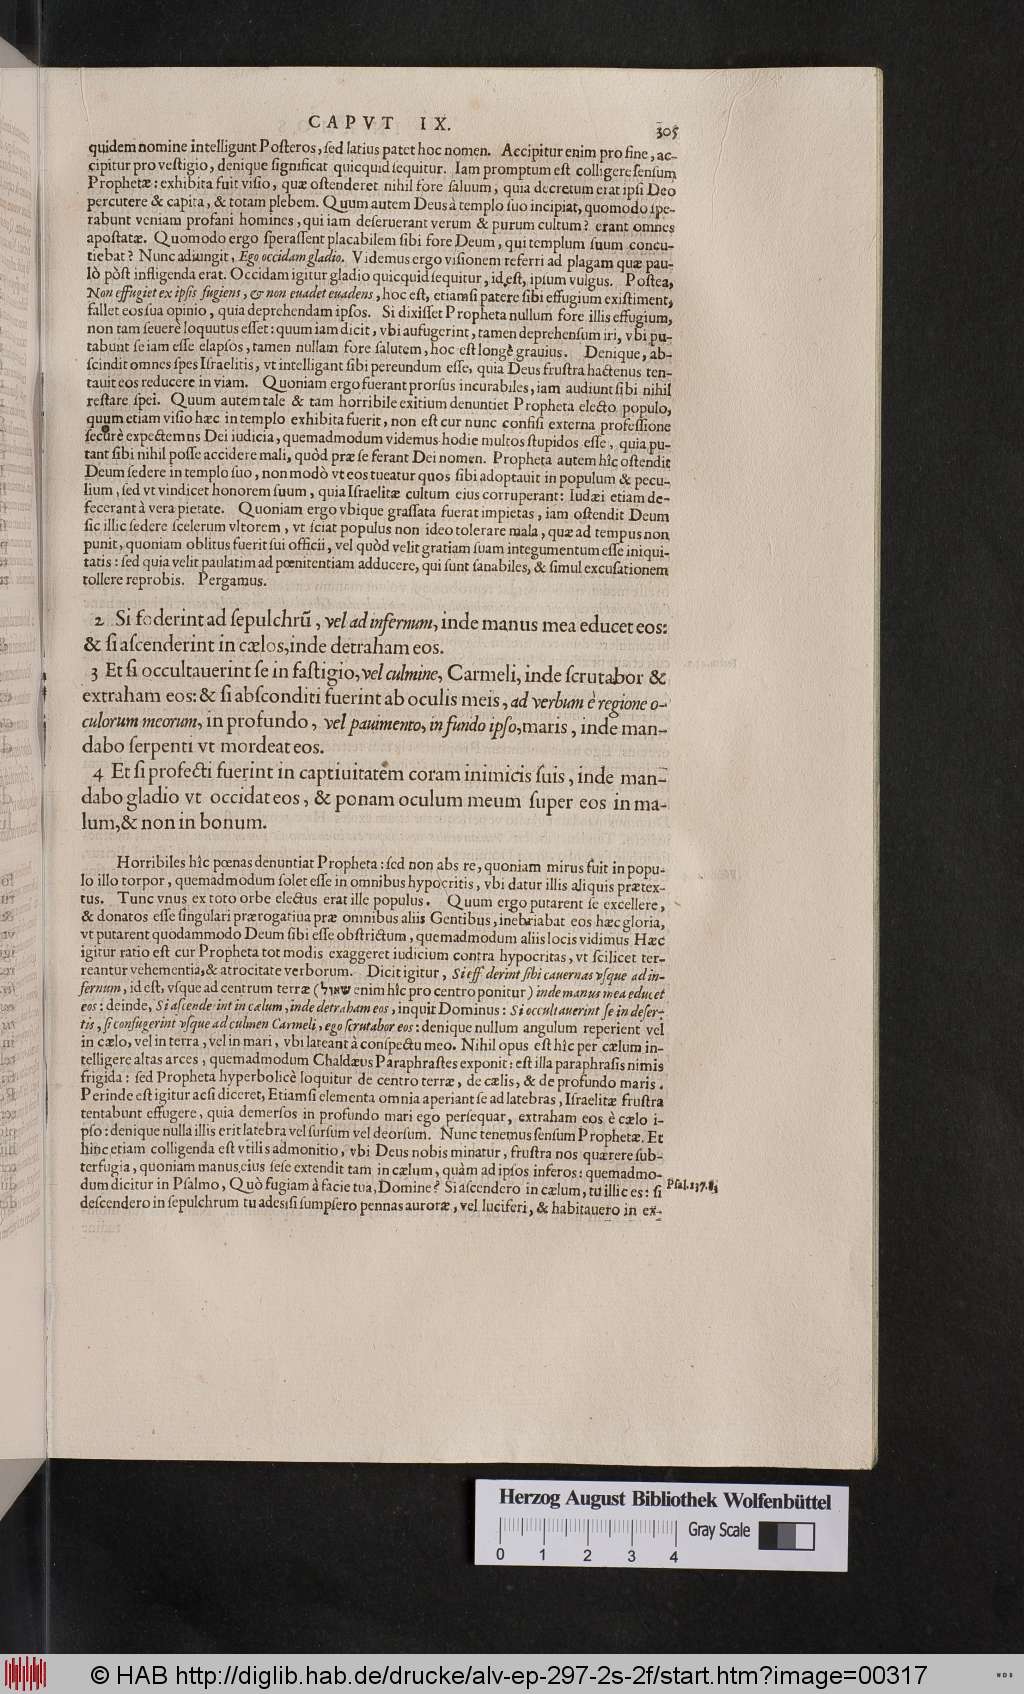 CAPVT IX.
305
quidem nomine intelligunt Posteros, sed latius patet hoc nomen. Accipitur enim pro fine, ac-
cipitur pro vestigio, denique significat quicquid sequitur. Iam promptum est colligere sensum
Prophetæ: exhibita fuit visio, quæ ostenderet nihil fore saluum, quia decretum erat ipsi Deo
percutere & capita, & totam plebem. Quum autem Deus à templo suo incipiat, quomodo spe-
rabunt veniam profani homines, qui iam deseruerant verum & purum cultum? erant omnes
apostatæ. Quomodo ergo sperassent placabilem sibi fore Deum, qui templum suum concu-
tiebat? Nunc adiungit, Ego occidam gladio. Videmus ergo visionem referri ad plagam quæ pau-
lò pòst infligenda erat. Occidam igitur gladio quicquid sequitur, id est, ipsum vulgus. Postea,
Non effugiet ex ipsis fugiens, & non euadet euadens, hoc est, etiamsi patere sibi effugium existiment,
fallet eos sua opinio, quia deprehendam ipsos. Si dixisset Propheta nullum fore illis effugium,
non tam seuerè loquutus esset: quum iam dicit, vbi aufugerint, tamen deprehensum iri, vbi pu-
tabunt se iam esse elapsos, tamen nullam fore salutem, hoc est longè grauius. Denique, ab-
scindit omnes spes Israelitis, vt intelligant sibi pereundum esse, quia Deus frustra hactenus ten-
tauit eos reducere in viam. Quoniam ergo fuerant prorsus incurabiles, iam audiunt sibi nihil
restare spei. Quum autem tale & tam horribile exitium denuntiet Propheta electo populo,
quum etiam visio hæc in templo exhibita fuerit, non est cur nunc confisi externa professione
securè expectemus Dei iudicia, quemadmodum videmus hodie multos stupidos esse, quia pu-
tant sibi nihil posse accidere mali, quòd præ se ferant Dei nomen. Propheta autem hîc ostendit
Deum sedere in templo suo, non modò vt eos tueatur quos sibi adoptauit in populum & pecu-
lium, sed vt vindicet honorem suum, quia Israelitæ cultum eius corruperant: Iudæi etiam de-
fecerant à vera pietate. Quoniam ergo vbique grassata fuerat impietas, iam ostendit Deum
sic illic sedere scelerum vltorem, vt sciat populus non ideo tolerare mala, quæ ad tempus non
punit, quoniam oblitus fuerit sui officii, vel quòd velit gratiam suam integumentum esse iniqui-
tatis: sed quia velit paulatim ad pœnitentiam adducere, qui sunt sanabiles, & simul excusationem
tollere reprobis. Pergamus.
2 Si foderint ad sepulchrū, vel ad infernum, inde manus mea educet eos:
& si ascenderint in cælos, inde detraham eos.
3 Et si occultauerint se in fastigio, vel culmine, Carmeli, inde scrutabor &
extraham eos: & si absconditi fuerint ab oculis meis, ad verbum è regione o-
culorum meorum, in profundo, vel pauimento, in fundo ipso, maris, inde man-
dabo serpenti vt mordeat eos.
4 Et si profecti fuerint in captiuitatem coram inimicis suis, inde man-
dabo gladio vt occidat eos, & ponam oculum meum super eos in ma-
lum, & non in bonum.
Horribiles hîc pœnas denuntiat Propheta: sed non abs re, quoniam mirus fuit in popu-
lo illo torpor, quemadmodum solet esse in omnibus hypocritis, vbi datur illis aliquis prætex-
tus. Tunc vnus ex toto orbe electus erat ille populus. Quum ergo putarent se excellere,
& donatos esse singulari prærogatiua præ omnibus aliis Gentibus, inebriabat eos hæc gloria,
vt putarent quodammodo Deum sibi esse obstrictum, quemadmodum aliis locis vidimus Hæc
igitur ratio est cur Propheta tot modis exaggeret iudicium contra hypocritas, vt scilicet ter-
reantur vehementia, & atrocitate verborum. Dicit igitur, Si eff derint sibi cauernas vsque ad in-
fernum, id est, vsque ad centrum terræ (שאול enim hîc pro centro ponitur) inde manus mea educet
eos: deinde, Si ascenderint in cælum, inde detraham eos, inquit Dominus: Si occultauerint se in deser-
tis, si confugerint vsque ad culmen Carmeli, ego scrutabor eos: denique nullum angulum reperient vel
in cælo, vel in terra, vel in mari, vbi lateant à conspectu meo. Nihil opus est hîc per cælum in-
telligere altas arces, quemadmodum Chaldæus Paraphrastes exponit: est illa paraphrasis nimis
frigida: sed Propheta hyperbolicè loquitur de centro terræ, de cælis, & de profundo maris.
Perinde est igitur acsi diceret, Etiamsi elementa omnia aperiant se ad latebras, Israelitæ frustra
tentabunt effugere, quia demersos in profundo mari ego persequar, extraham eos è cælo i-
pso: denique nulla illis erit latebra vel sursum vel deorsum. Nunc tenemus sensum Prophetæ. Et
hinc etiam colligenda est vtilis admonitio, vbi Deus nobis minatur, frustra nos quærere sub-
terfugia, quoniam manus eius sese extendit tam in cælum, quàm ad ipsos inferos: quemadmo-
dum dicitur in Psalmo, Quò fugiam à facie tua, Domine? Si ascendero in cælum, tu illic es: si
descendero in sepulchrum tu ades: si sumpsero pennas auroræ, vel luciferi, & habitauero in ex-
Herzog August Bibliothek Wolfenbüttel
Gray Scale
0 1 2 3 4
© HAB http://diglib.hab.de/drucke/alv-ep-297-2s-2f/start.htm?image=00317